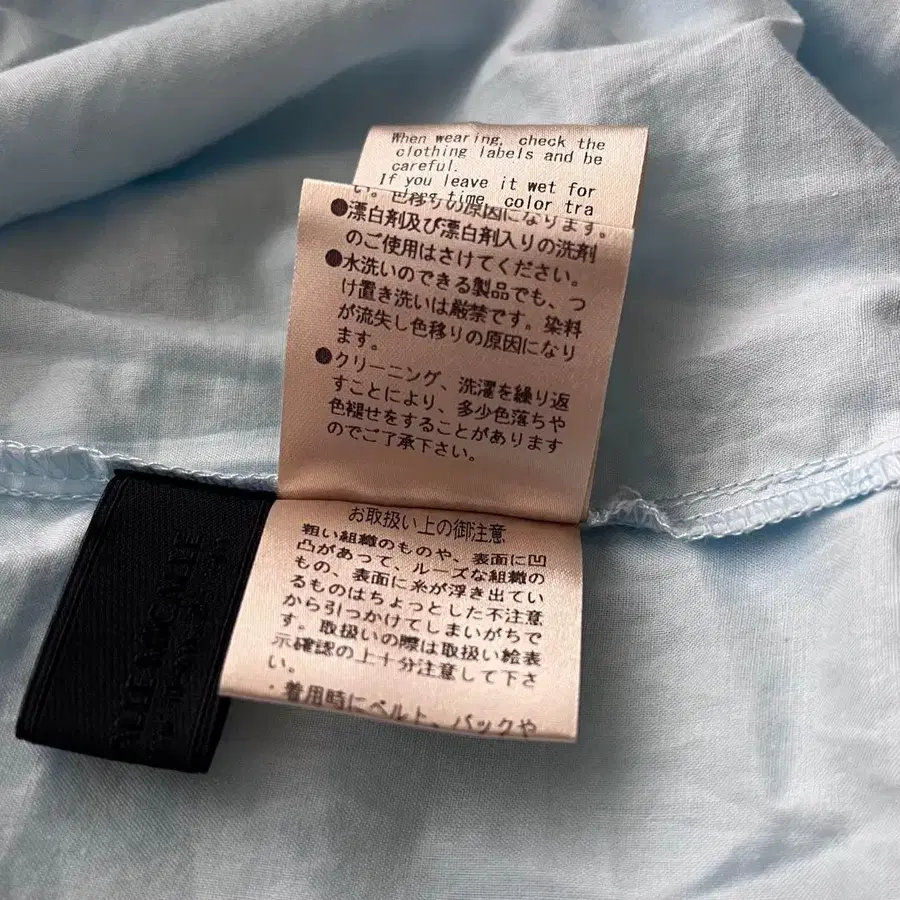 When wearing, check the
clothing labels and be
careful.
If you leave it wet for
time, color tra
い。色移りの原因になります。
●漂白剤及び漂白剤入りの洗剤
のご使用はさけてください。
●水洗いのできる製品でも、つ
け置き洗いは厳禁です。染料
が流失し色移りの原因になり
ます。
●クリーニング、洗濯を繰り返
すことにより、多少色落ちや
色褪せをすることがあります
のでご了承下さい。
お取扱い上の御注意
粗い組織のものや、表面に凹
凸があって、ルーズな組織の
もの、表面に糸が浮き出てい
るものはちょっとした不注意
から引っかけてしまいがちで
す。取扱いの際は取扱い絵表
示確認の上十分注意して下さ
い。
・着用時にベルト、バックや